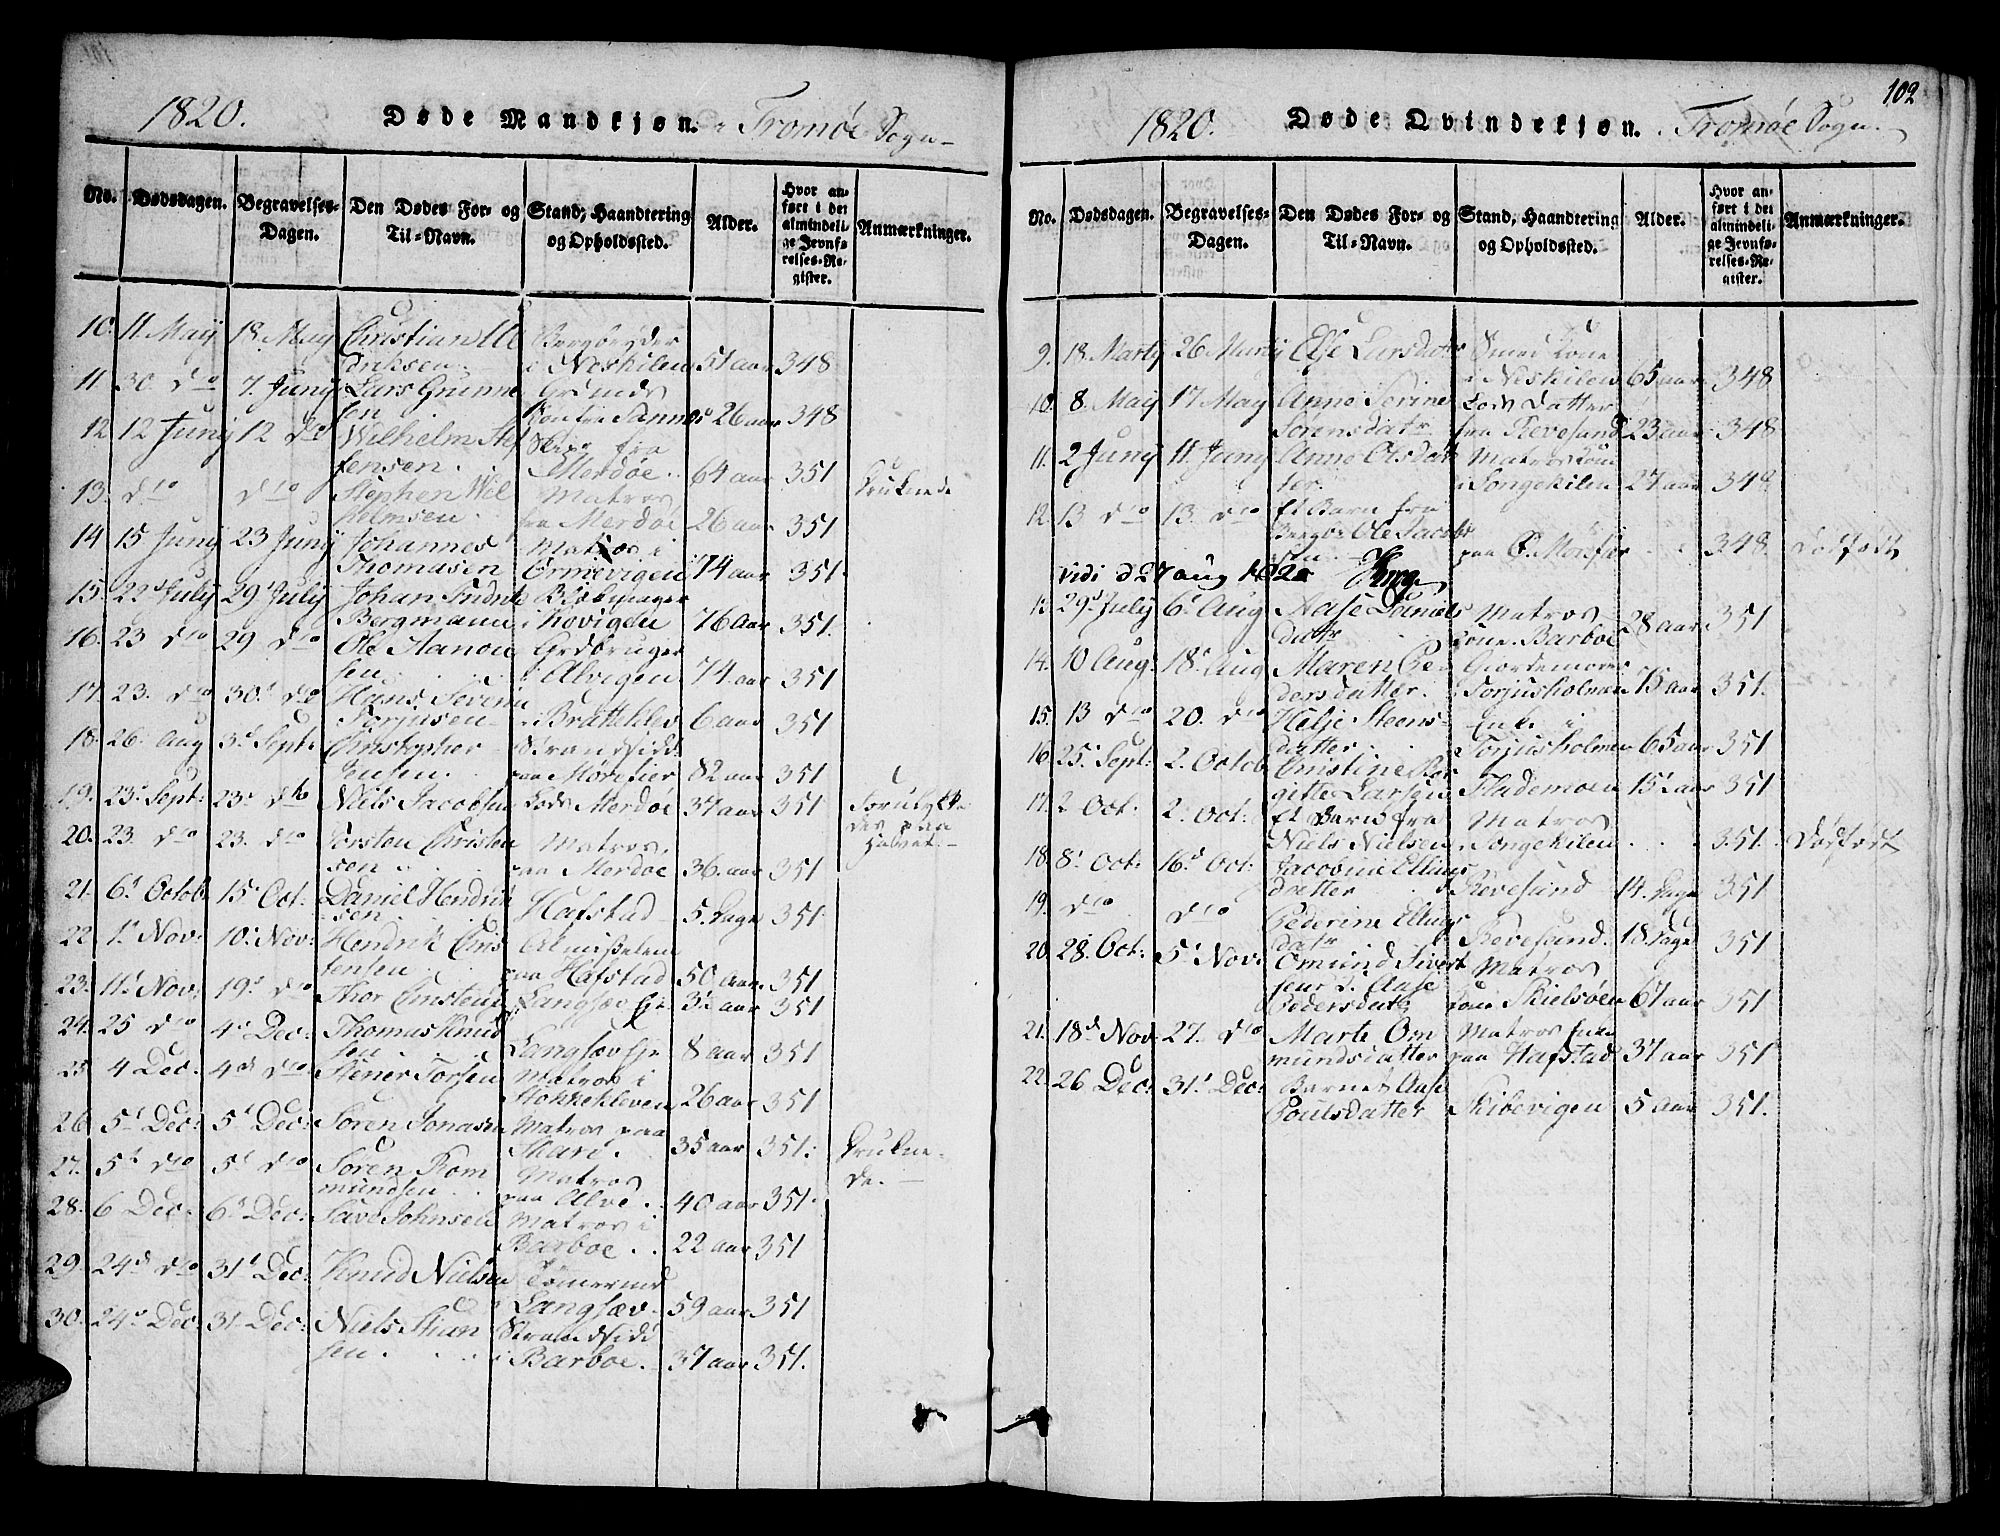 1820. Døde Mandkjøn. Tromøe Sogn
No. Dødsdagen. Begravelses-Dagen. Den Dødes For- og Til-Navn. Stand, Haandtering og Opholdssted. Alder. Hvor anført i det almindelige Jevnførelses-Register. Anmærkninger.
10. 11 Maij 18. May Christian
Eriksen i Neskilen 51 aar 348
11 30 dto 7. Junij Lars Gunne
sen Sannes 26 aar 348
12 12 Junij 12 dto Wilhelm Stef
fensen. fra Merdøe. 64 aar 351
13. dto dto Stephen Wil Matros
helmsen fra Merdøe 26 aar 351
14 15 Junij 23 Junij Johannes Matros i
Thomasen Ormevigen 74 aar 351
15. 22 July 29 July Johan Fridrik
Bergmann i Hovigen 76 aar 351.
16. 23 dto 29 dto Ole Hanon Grdbruger
sen i Alvigen 74 aar 351
17. 23. dto 30 dto Hans Severin
Torjusen i Bratteklev 6 aar 351
18. 26. Aug 3 Sept: Christopher Strandsidd:
Jensen. paa Mørefier 82 aar 351
19. 23 Sept: 23 dto Niels Jacobsen Lods Merdøe 37 aar 351 Forulykke
20. 23. dto 23. dto Torsten Christen Matros. des paa
sen paa Merdøe 36. aar 351 Havet.
21. 6 Octob 15 Oct: Daniel Hendrik
sen Hafstad 5. Dage 351
22 1 Nov: 10 Nov: Hendrik Chris Almisselem
tensen paa Hafstad 50 aar. 351
23. 11 Nov: 19 dto Thor 32 aar 351
24. 25 dto 4 Dec: Thomas Knud
sen Langsæv Eje 8 aar 351
25. 4 Dec. 4 dto Stener Torsen Matros i
Stokkekleven 26 aar 351
26. 5 Dec: 5 Dec: Søren Jonasen Matros paa
Skare. 35 aar 351. Drukne
27. 5 dto 5 dto Søren Rom Matros de.
mundsen paa Alve. 40 aar 351.
28. 6 Dec: 6 Dec: Save Johnsen Matros i
Barboe. 22 aar 351
29. 24 dto 31 Dec: Knud Nielsen Tømermd
Langsæv. 59 aar 351
30. 24 Dec: 31 Dec: Niels Stian Strandsidd
sen. i Barboe. 37 aar 351.
102
1820. Døde Qvindekjøn. Tromøe Sogn.
No. Dødsdagen. Begravelses-Dagen. Den Dødes For- og Til-Navn. Stand, Haandtering og Opholdssted. Alder. Hvor anført i det almindelige Jevnførelses-Register. Anmærkninger.
9. 18. Martij 26 Martij Else Larsdatr Smed Kone
i Neskilen 65 aar 348
10. 8. Maij 17 Maij Anne Serine Lods Datter
Sorensdatr fra Revesand 23 aar 348
11. 2 Junij 11 Junij Anne Olsdat Matros Kone
ter. i Songekilen 27 aar 348
12. 13 dto 13. dto Et Barn fra
Ole Jacob
sen paa 348. Dødfødt
Vidi d 27 aug 1820
13 29 July 6 Aug Aase Daniels Matros
datr Kone Barboe 28 aar 351
14. 10 Aug: 18 Aug Maren Pe Giordemoer
dersdatter. Torjusholmen 75 aar 351.
15. 13 dto 20. dto Helje Steens Enke i
datter. Torjusholmen 65 aar 351
16. 25 Sept: 2. Octob Christine Bir
gitte Larsen Flademoen 15 aar 351
17. 2 Oct: 2. Oct: Et Barn fra Matros
Niels Nielsen Songekilen 351. Dødfødt
18. 8 Oct: 16 Oct: Jacobine Ellings
datter Revesand 14. Dage 351
19. dto dto Pederine Ellings
datr Revesand. 18. Dage 351
20. 28. Oct: 5 Nov: Omund Sivert Matros
sens D. Aase
Pedersdatr Kone Skielsøen 67 aar 351
21. 18 Nov: 27. dto Marte Om Matros Enke
mundsdatter paa Hafstad 37 aar 351
22. 26 Dec: 31 Dec: Barnet Aase
Poulsdatter Skibevigen 5 aar 351.